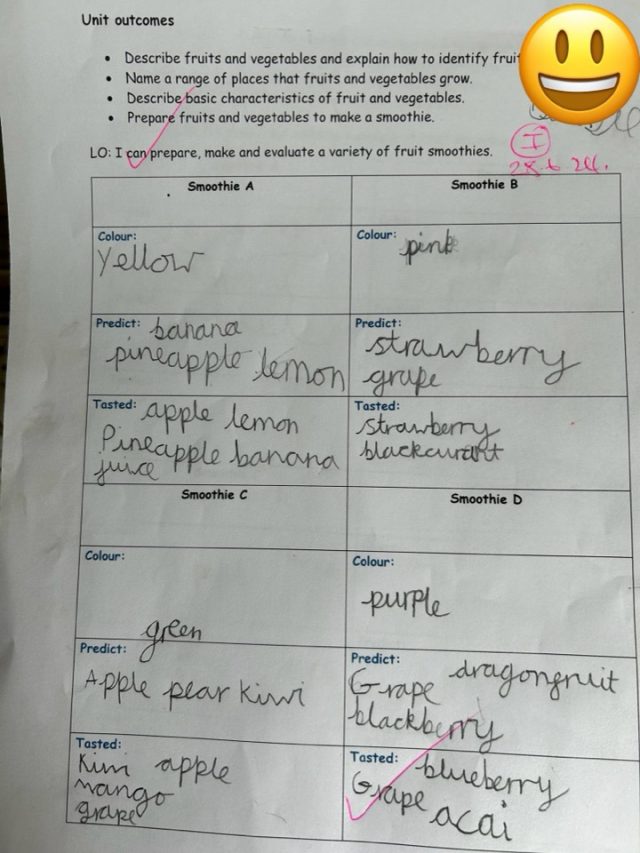 Unit outcomes
• Describe fruits and vegetables and explain how to identify
• Name a range of places that fruits and vegetables grow.
• Describe basic characteristics of fruit and vegetables.
• Prepare fruits and vegetables to make a smoothie.
LO: I can prepare, make and evaluate a variety of fruit smoothies.
I
28.6.24.
Smoothie A
Smoothie B
Colour:
yellow
Colour:
pink
Predict: banana
pineapple lemon
Predict:
strawberry
grape
Tasted: apple lemon
Pineapple banana
juice
Tasted:
strawberry
blackcurrant
Smoothie C
Smoothie D
Colour:
green
Colour:
purple
Predict:
Apple pear kiwi
Predict:
Grape dragonfruit
blackberry
Tasted:
Kiwi apple
mango
grape
Tasted: blueberry
Grape acai